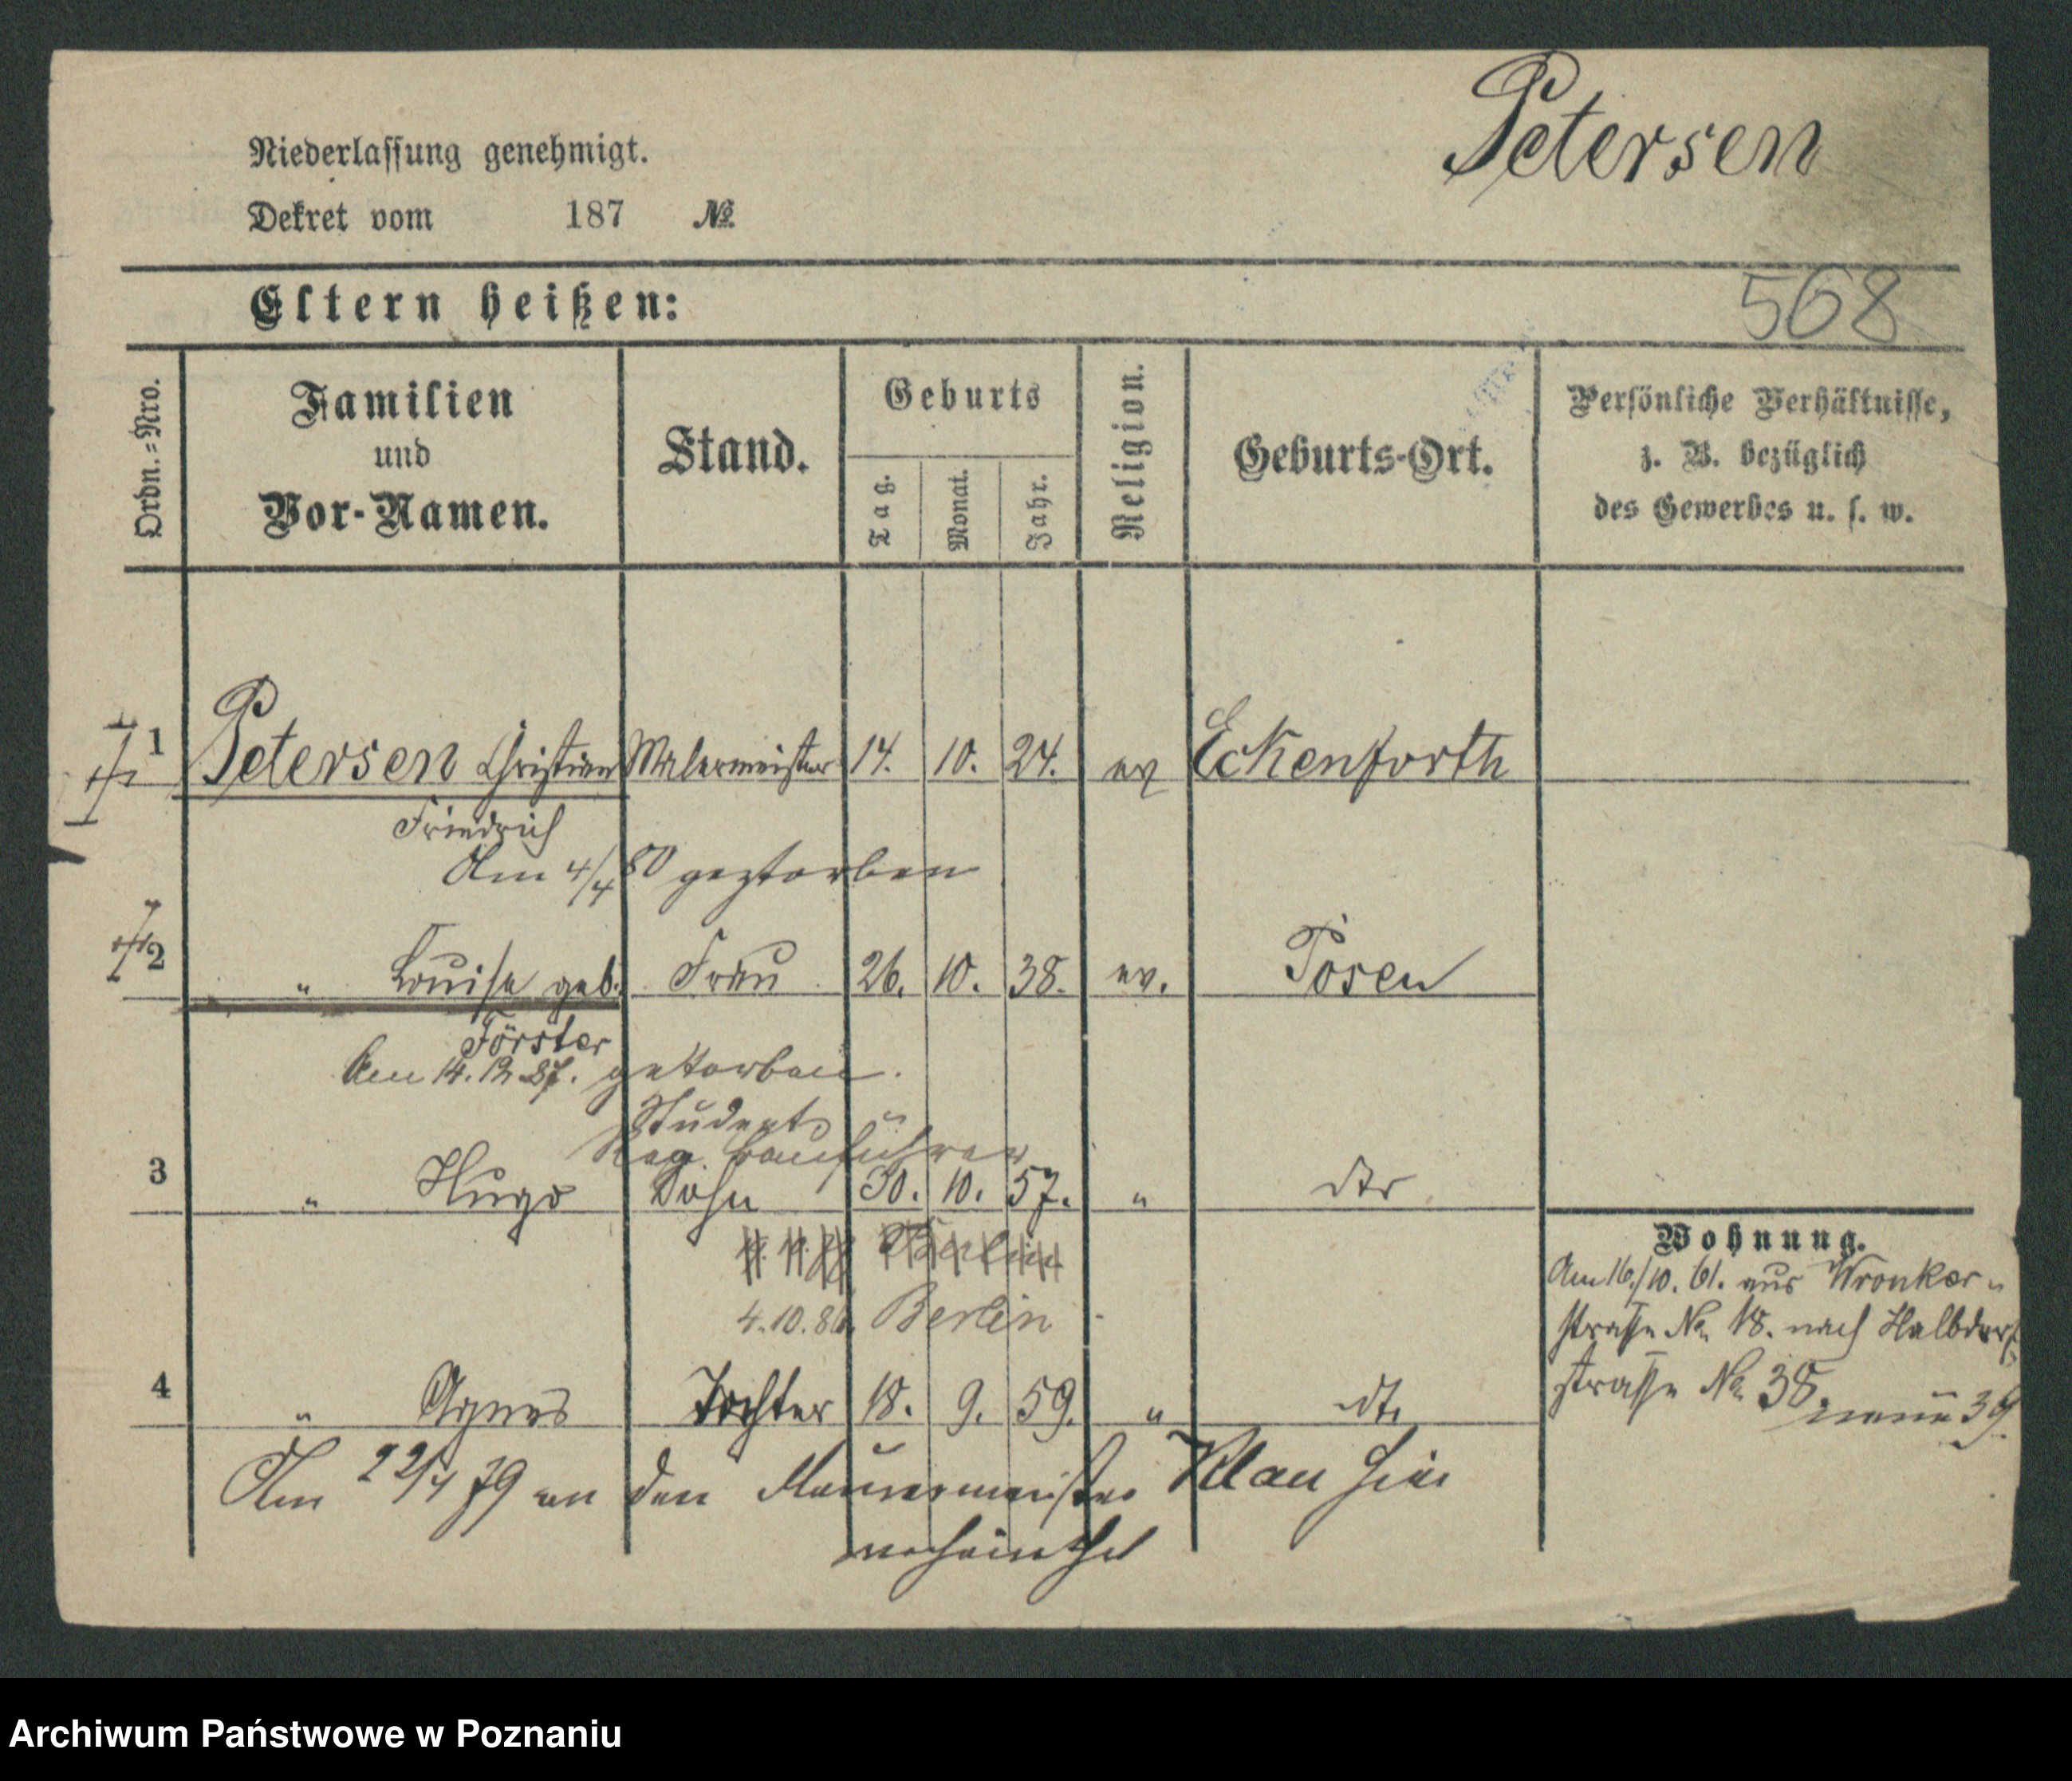 Petersen
Niederlassung genehmigt.
Dekret vom 187 №
Eltern heißen:
568
Ordn.=Nro.
Familien
und
Vor-Namen.
Stand.
Geburts
Tag.
Monat.
Jahr.
Religion.
Geburts-Ort.
Persönliche Verhältnisse,
z. B. bezüglich
des Gewerbes u. s. w.
1 Petersen Christian Malermeister 14. 10. 24. ev Eckenforth
Friedrich
Am 4/4 80 gestorben
2 " Louise geb. Frau 26. 10. 38. ev. Posen
Förster
Am 14. 12. 87. gestorben.
Student
Reg. Bauführer
3 " Hugo Sohn 30. 10. 57. " dto
Berlin
4.10.86. Berlin
4 " Agnes Tochter 18. 9. 59. " dto
Am 22/4 79 an den Maurermeister Klau hier
verheirathet
Wohnung.
Am 16./10. 61. aus Wronker-
straße No. 18. nach Halbdorf
straße No. 38.
neue 39.
Archiwum Państwowe w Poznaniu